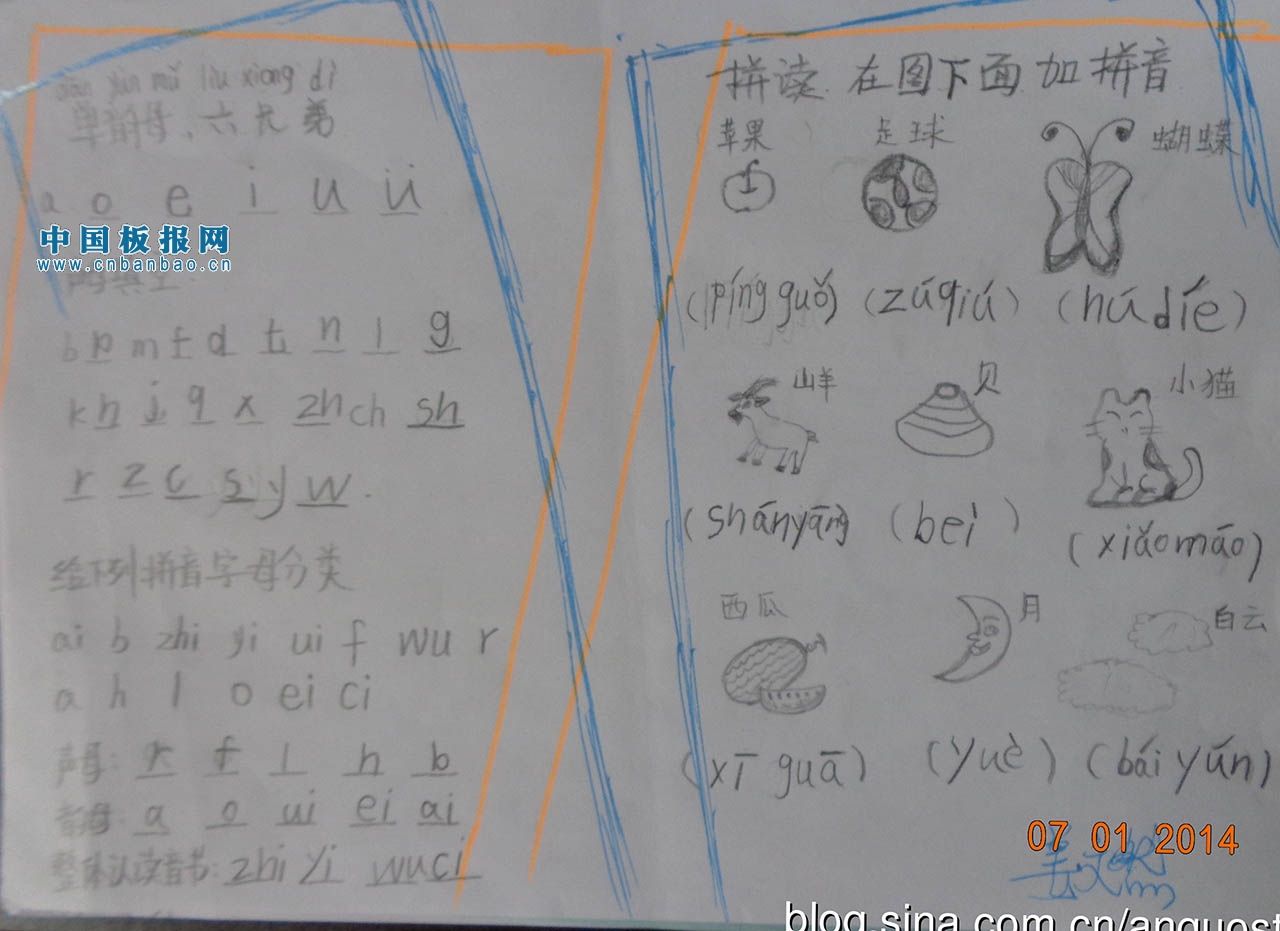 dān yùn mǔ liu xiong dì
单韵母,六兄弟
a o e i u ü
中国板报网
www.cnbanbao.cn
b p m f d t n l g
k h j q x zh ch sh
r z c s y w.
给下列拼音字母分类
ai b zhi yi ui f wu r
a h l o ei ci
声母: r f l h b
韵母: a o ui ei ai
整体认读音节: zhi yi wu ci
一拼读 在图下面加拼音
苹果 足球 蝴蝶
(píng guǒ) (zúqiú) (hú díe)
山羊 贝 小猫
(shānyāng) (bei) (xiǎomāo)
西瓜 月 白云
(xī guā) (yuè) (bái yún)
07 01 2014
blog.sina.com.cn/anguost